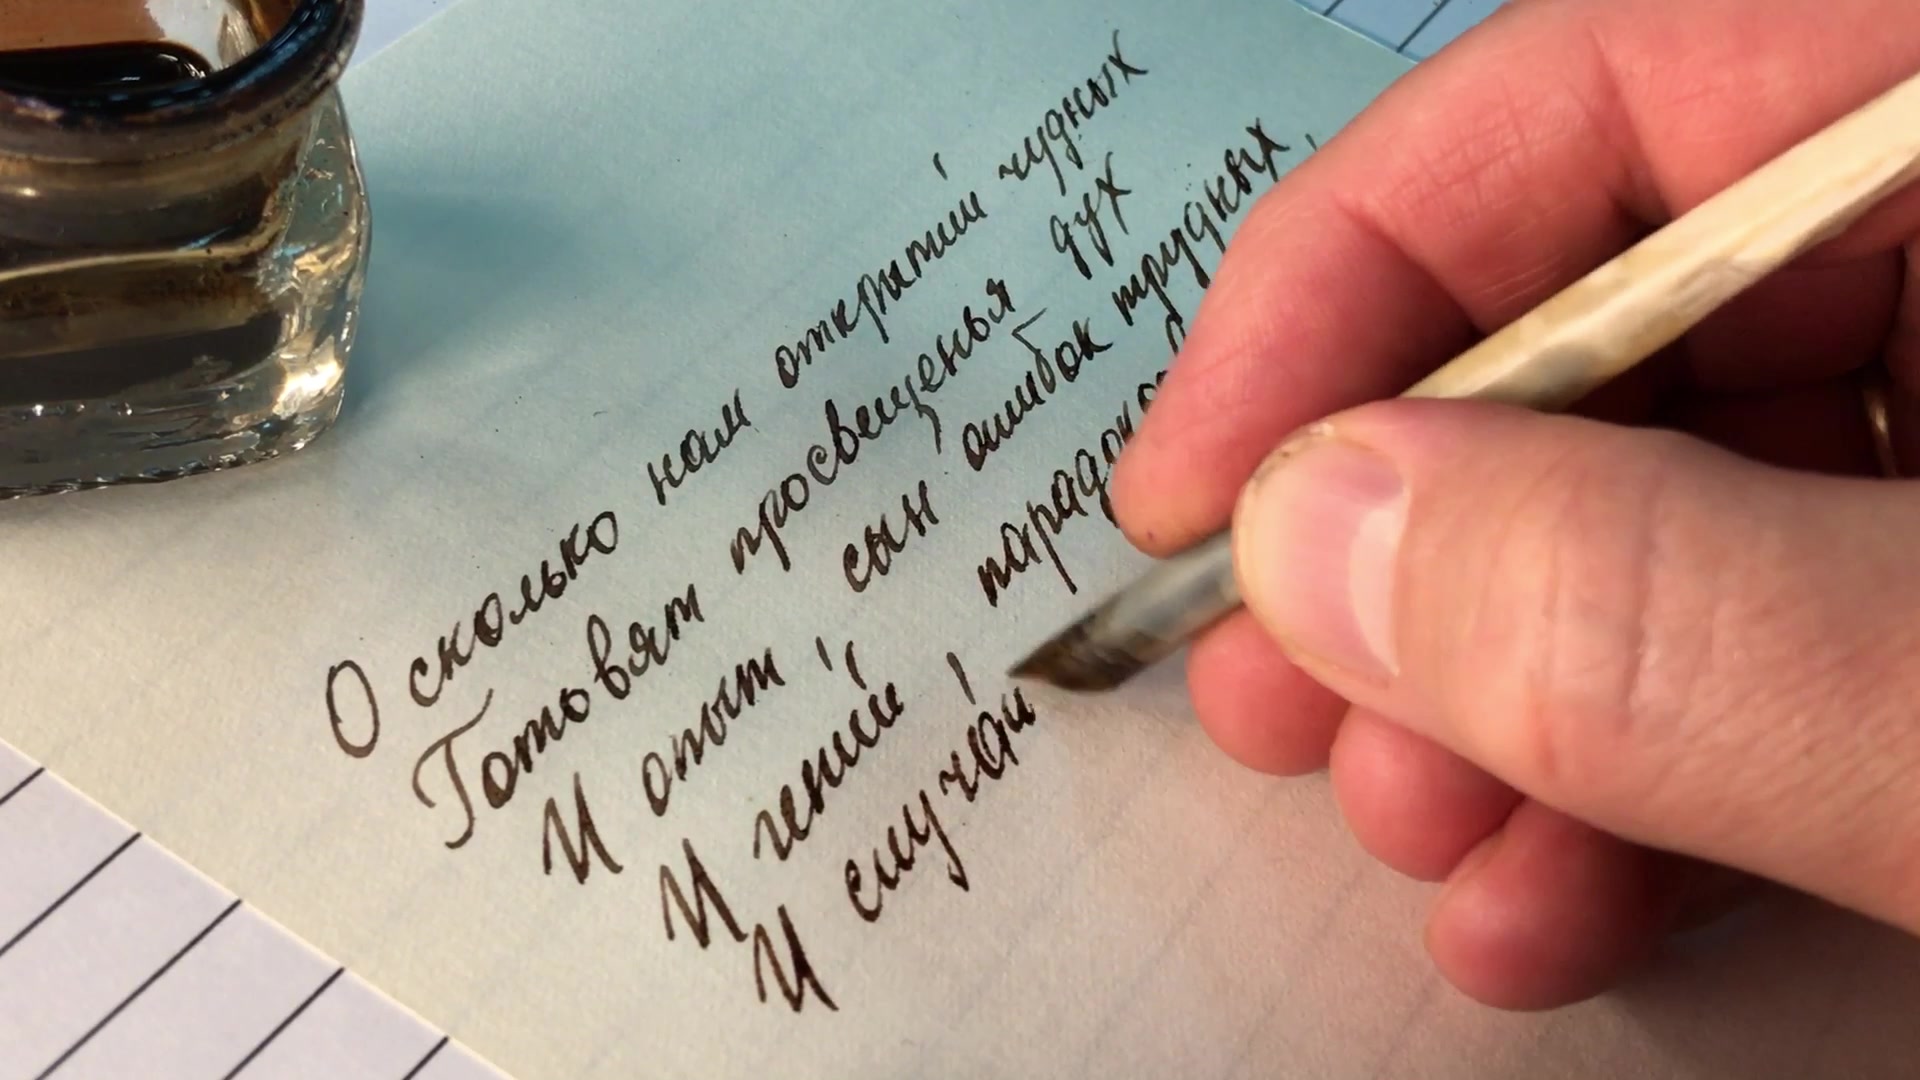 О сколько нам открытий чудных
Готовят просвещенья дух
И опыт, сын ошибок трудных,
И гений,
И случай